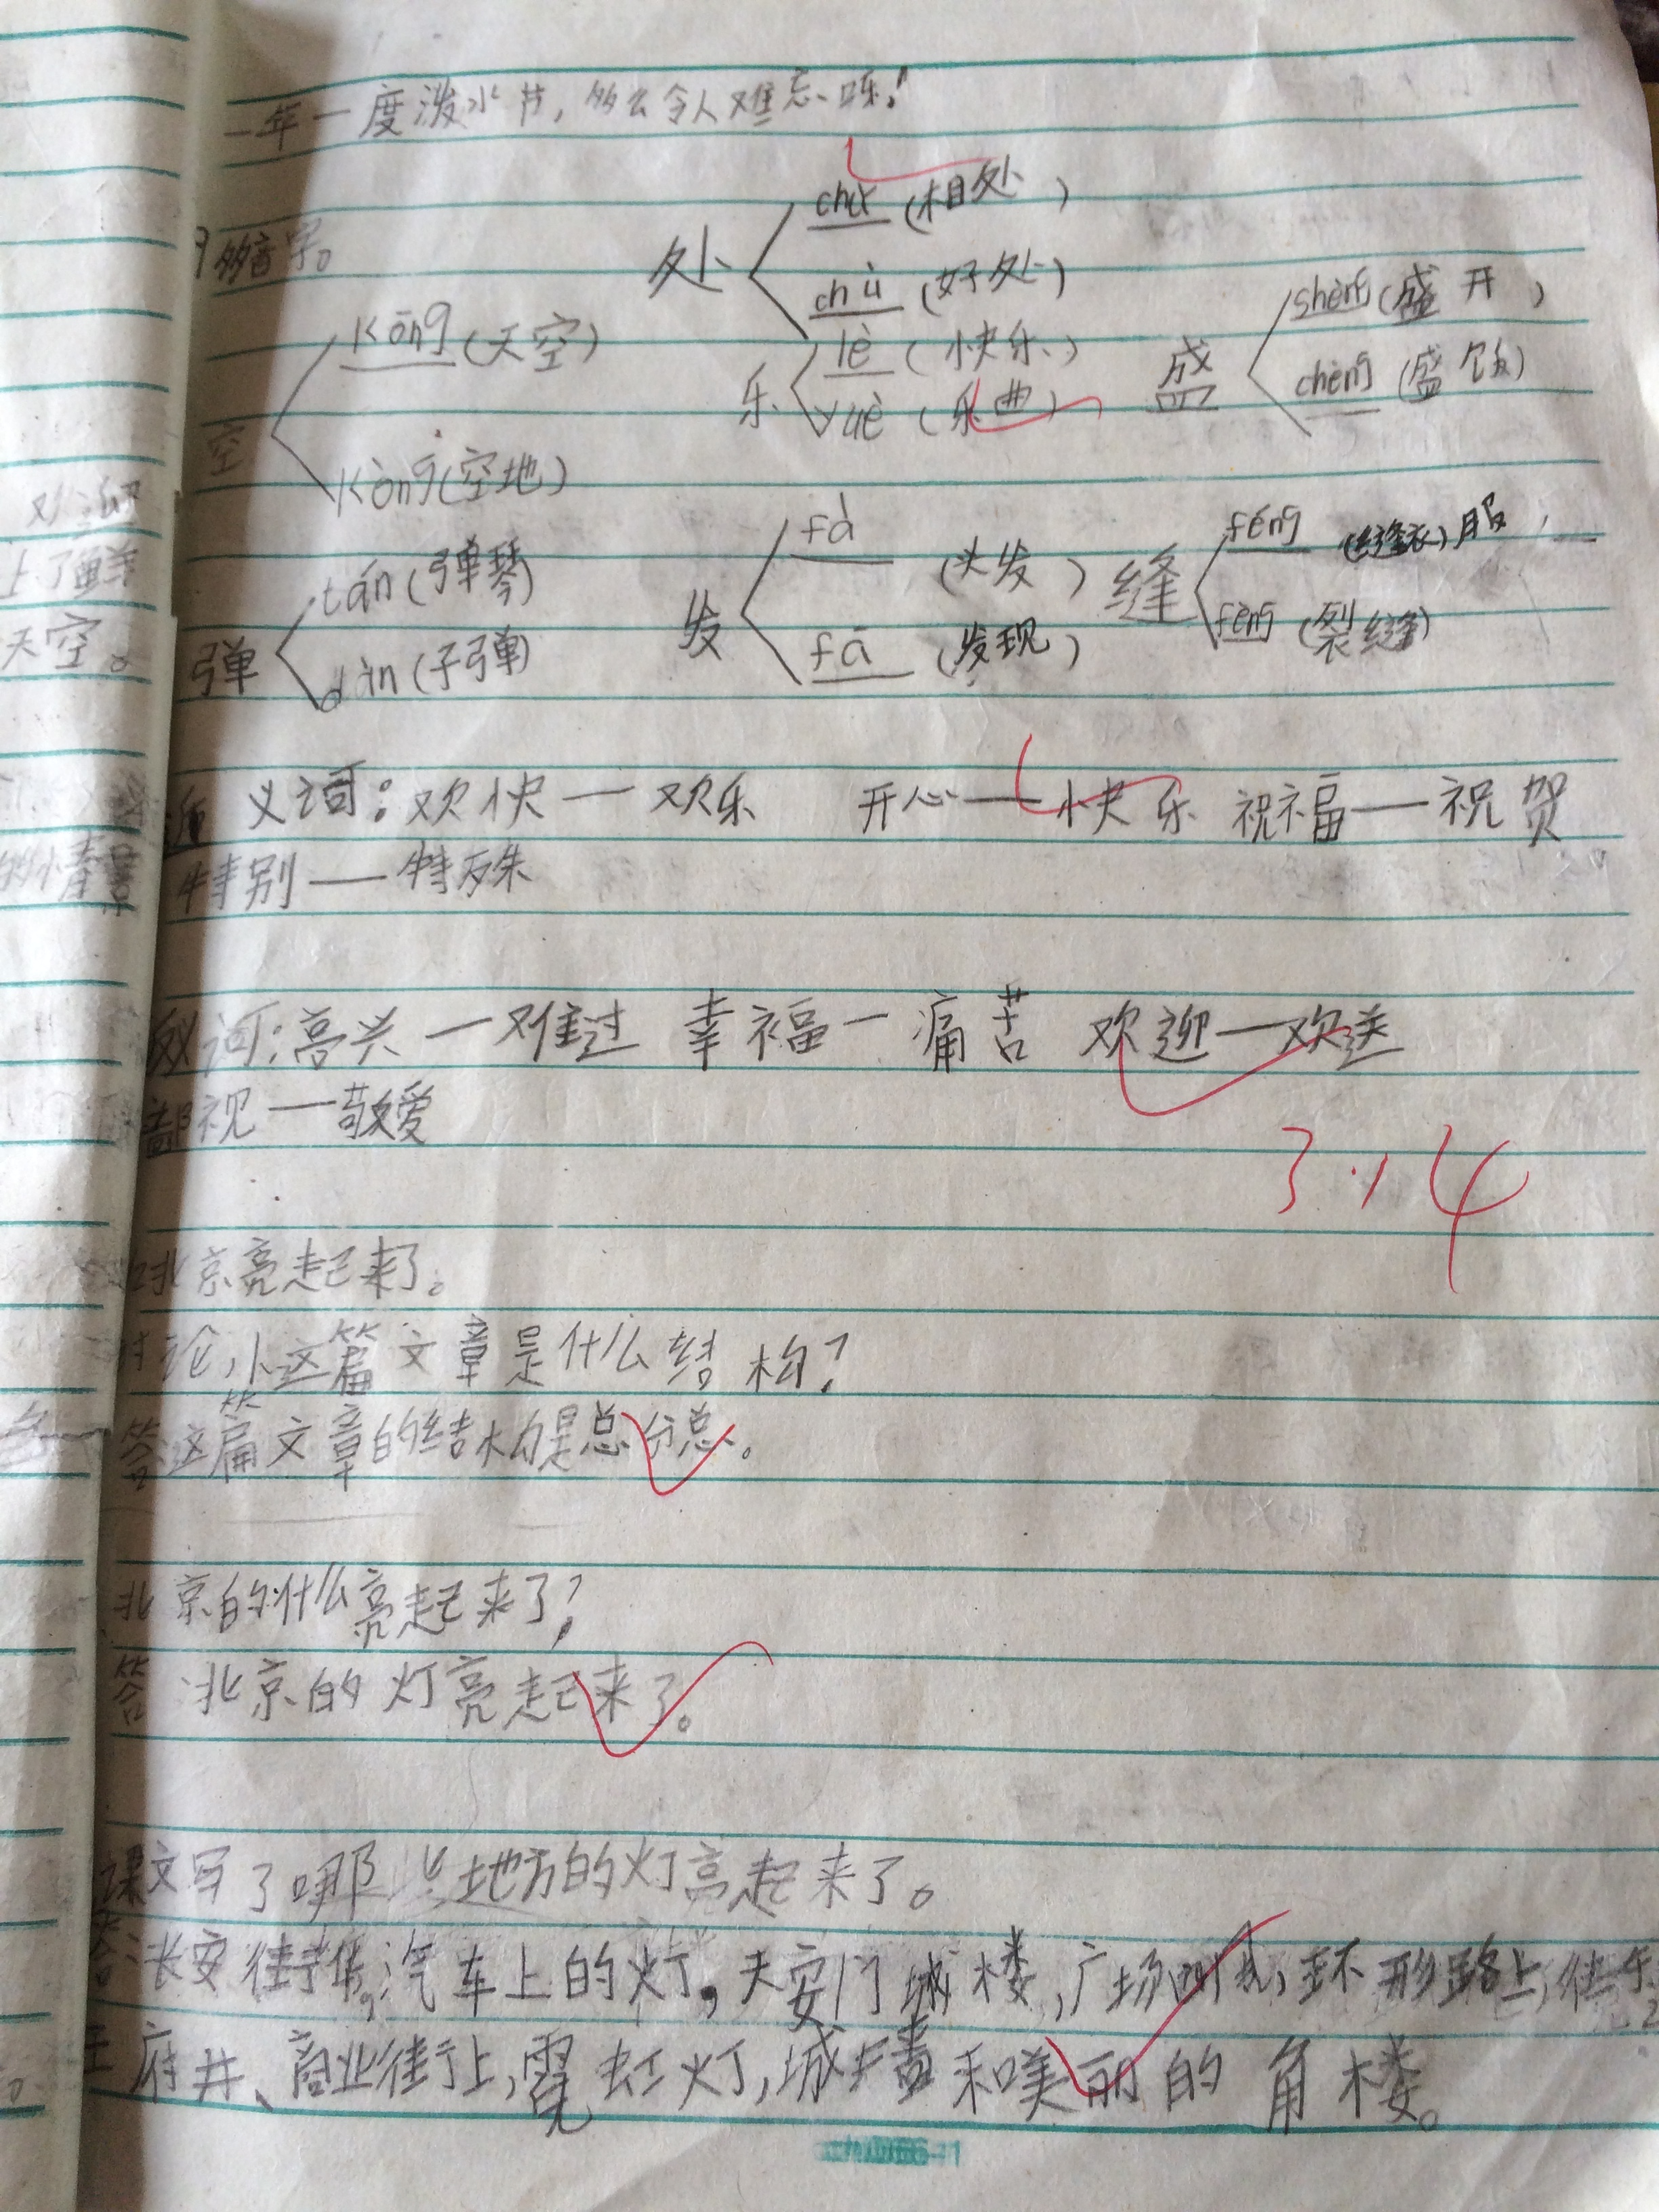 一年一度泼水节，多么令人难忘啊！
多音字。
处 chǔ (相处) chù (好处)
空 kōng (天空) kòng (空地)
乐 lè (快乐) yuè (乐曲)
盛 shèng (盛开) chéng (盛饭)
弹 tán (弹琴) dàn (子弹)
发 fà (头发) fā (发现)
缝 féng (缝衣)服 fèng (裂缝)
近义词：欢快—欢乐 开心—快乐 祝福—祝贺
特别—特殊
反义词：高兴—难过 幸福—痛苦 欢迎—欢送
鄙视—敬爱
3.14
北京亮起来了。
讨论，这篇文章是什么结构？
答：这篇文章的结构是总分总。
北京的什么亮起来了？
答：北京的灯亮起来了。
课文写了哪些地方的灯亮起来了。
答：长安街，汽车上的灯，天安门城楼，广场四周，环形路上，
王府井、商业街上，霓虹灯，城墙和美丽的角楼。
对
上了鲜
天空。
的情